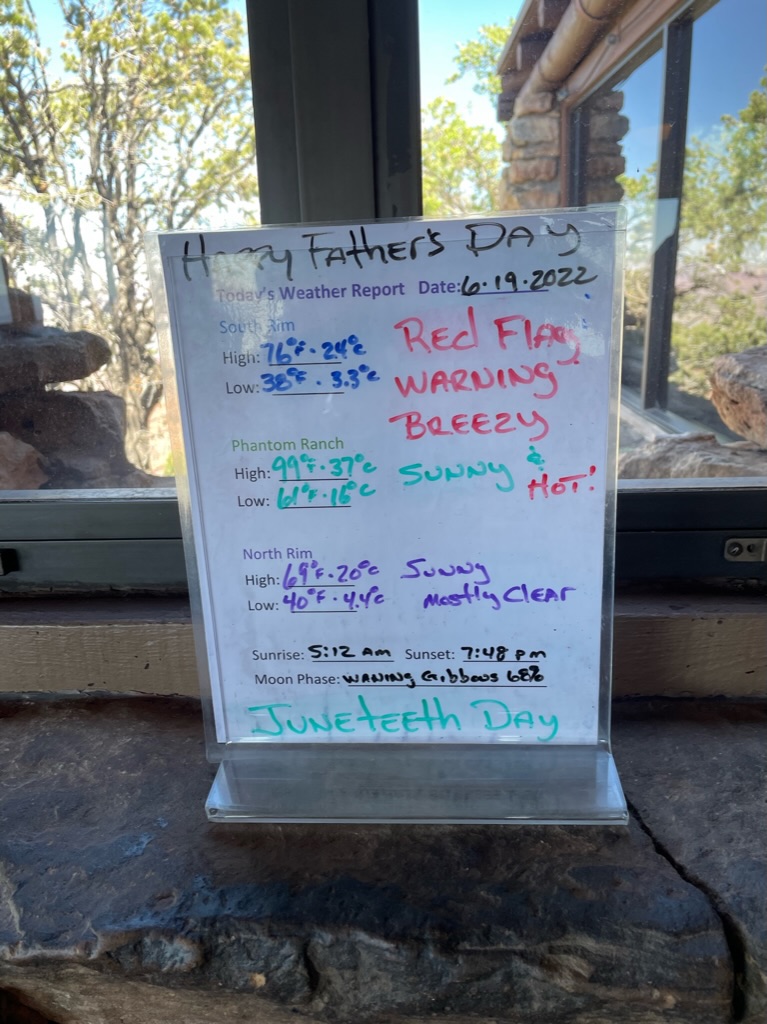 Happy Father's Day
Today's Weather Report Date: 6.19.2022
South Rim
High: 76°F · 24°C
Low: 38°F · 3.3°C
Red Flag
Warning
Breezy
Phantom Ranch
High: 99°F · 37°C
Low: 61°F · 16°C
Sunny & Hot!
North Rim
High: 69°F · 20°C Sunny
Low: 40°F · 4.4°C Mostly Clear
Sunrise: 5:12 am Sunset: 7:48 pm
Moon Phase: Waning Gibbous 68%
Juneteeth Day